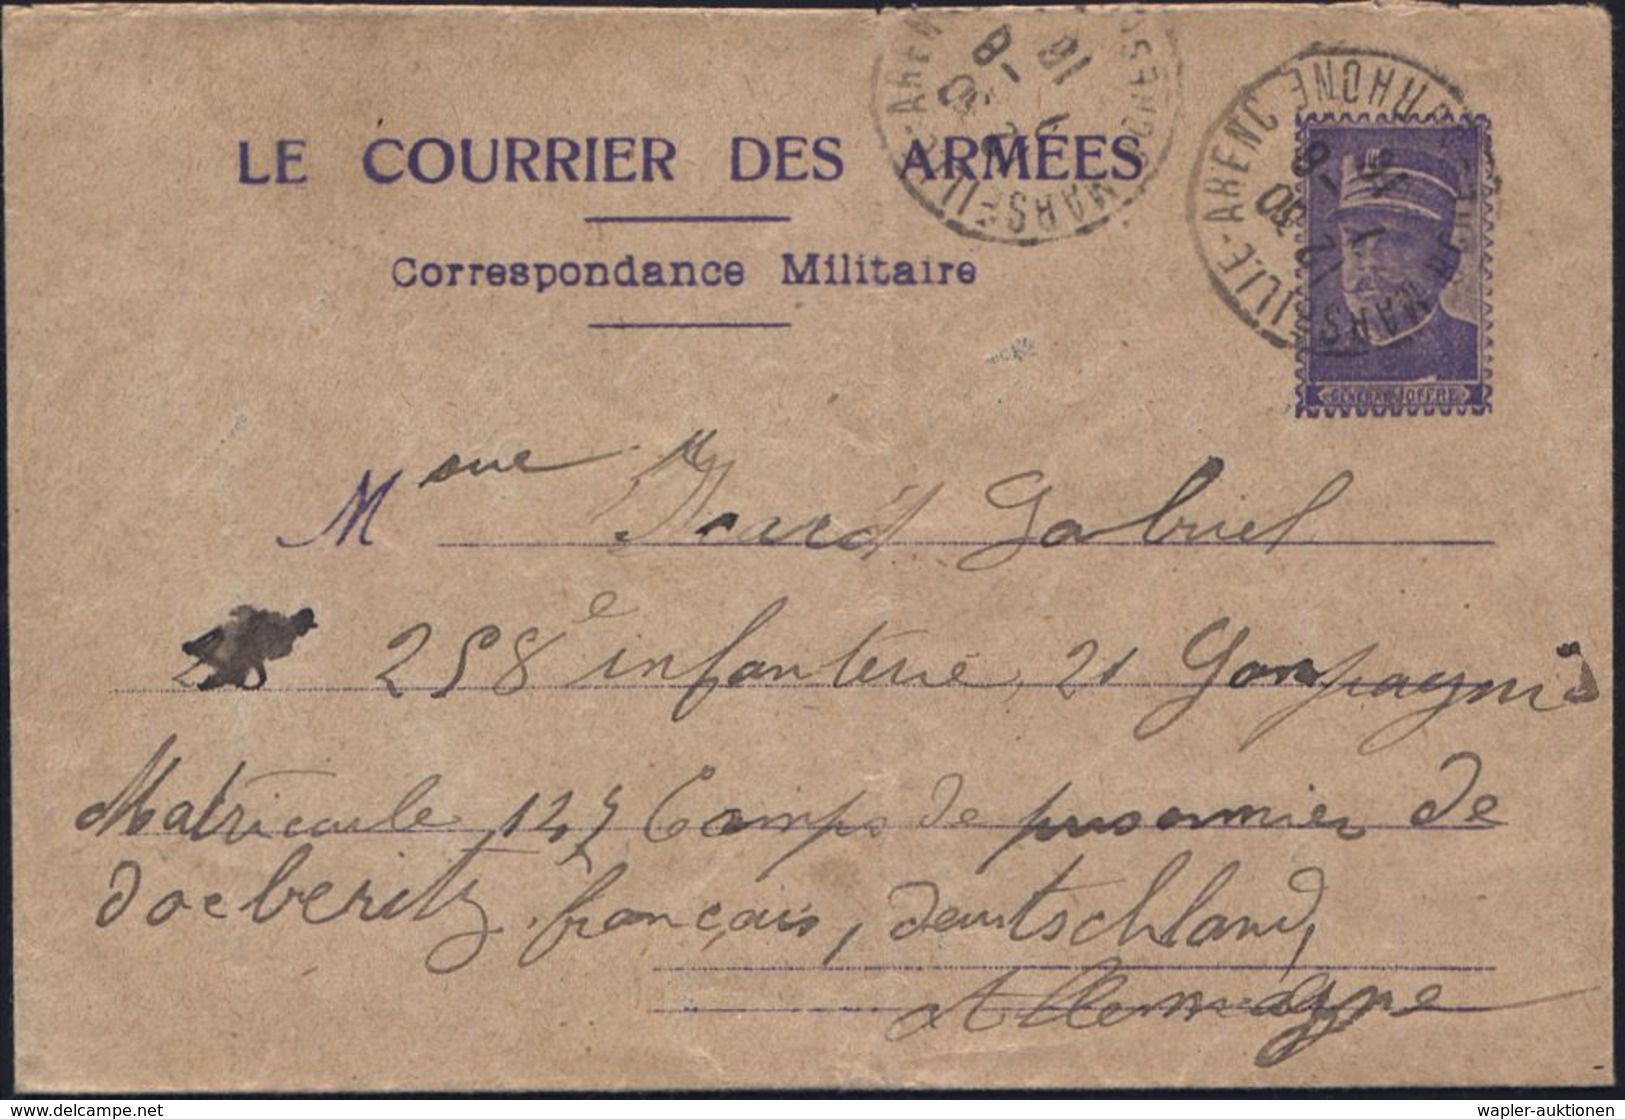 LE COURRIER DES ARMÉES
Correspondance Militaire
MARSEILLE-ARENC
MARSEILLE-ARENC RHONE
GÉNÉRAL JOFFRE
M Gabriel
258e infanterie, 21 Compagnie
Matricule Camps de prisonnier de
doeberitz français, deutschland,
Allemagne
© www.delcampe.net
wapler-auktionen